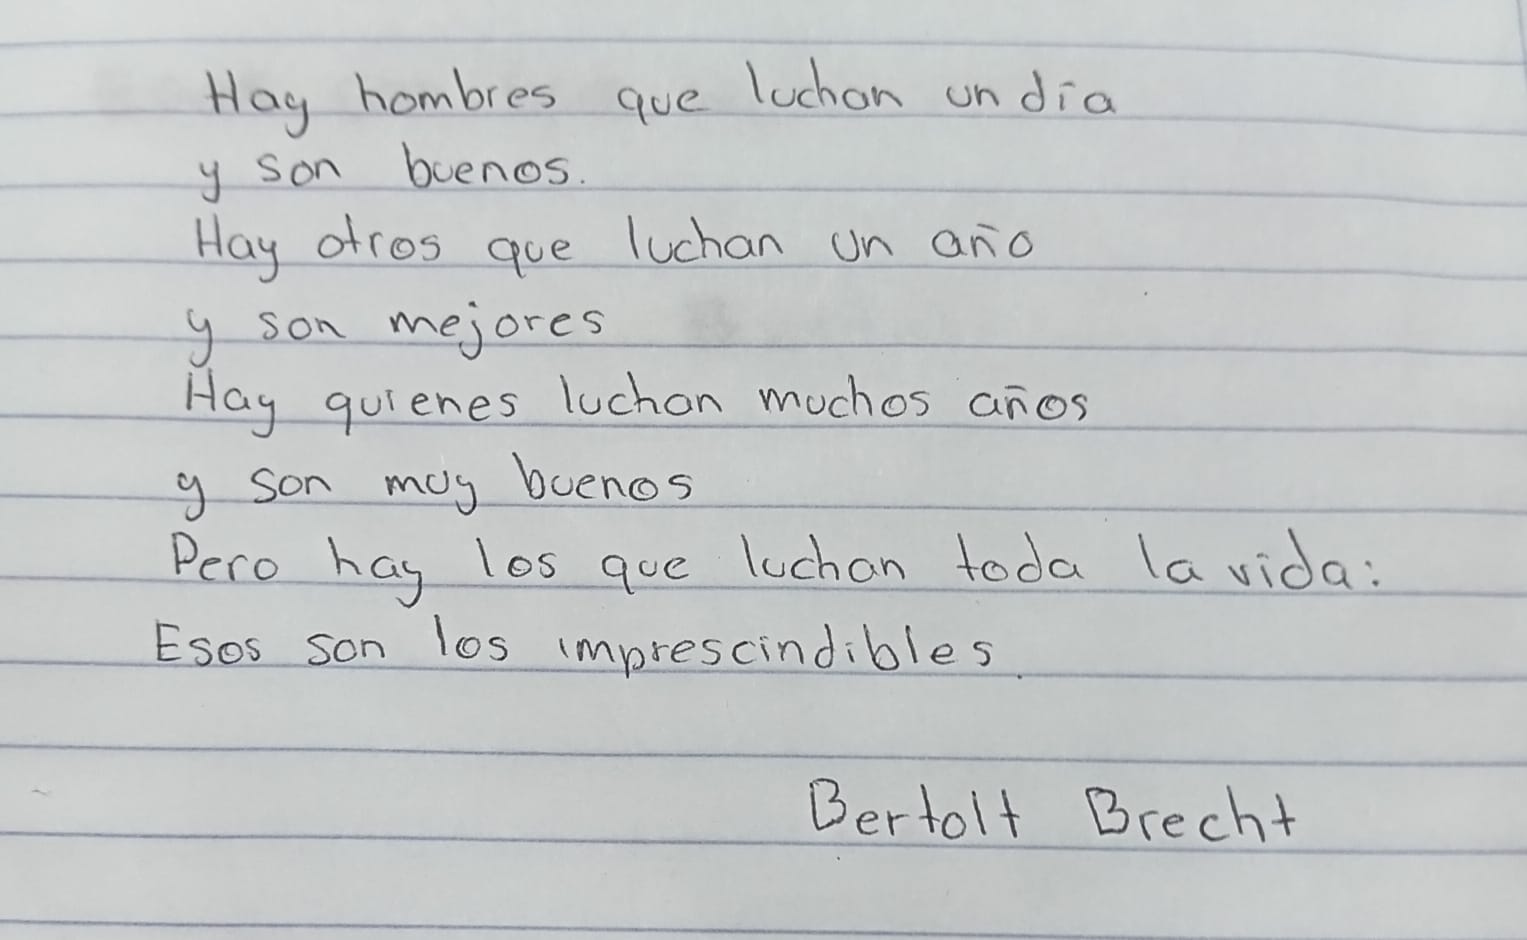 Hay hombres que luchan un día
y son buenos.
Hay otros que luchan un año
y son mejores
Hay quienes luchan muchos años
y son muy buenos
Pero hay los que luchan toda la vida:
Esos son los imprescindibles.
Bertolt Brecht